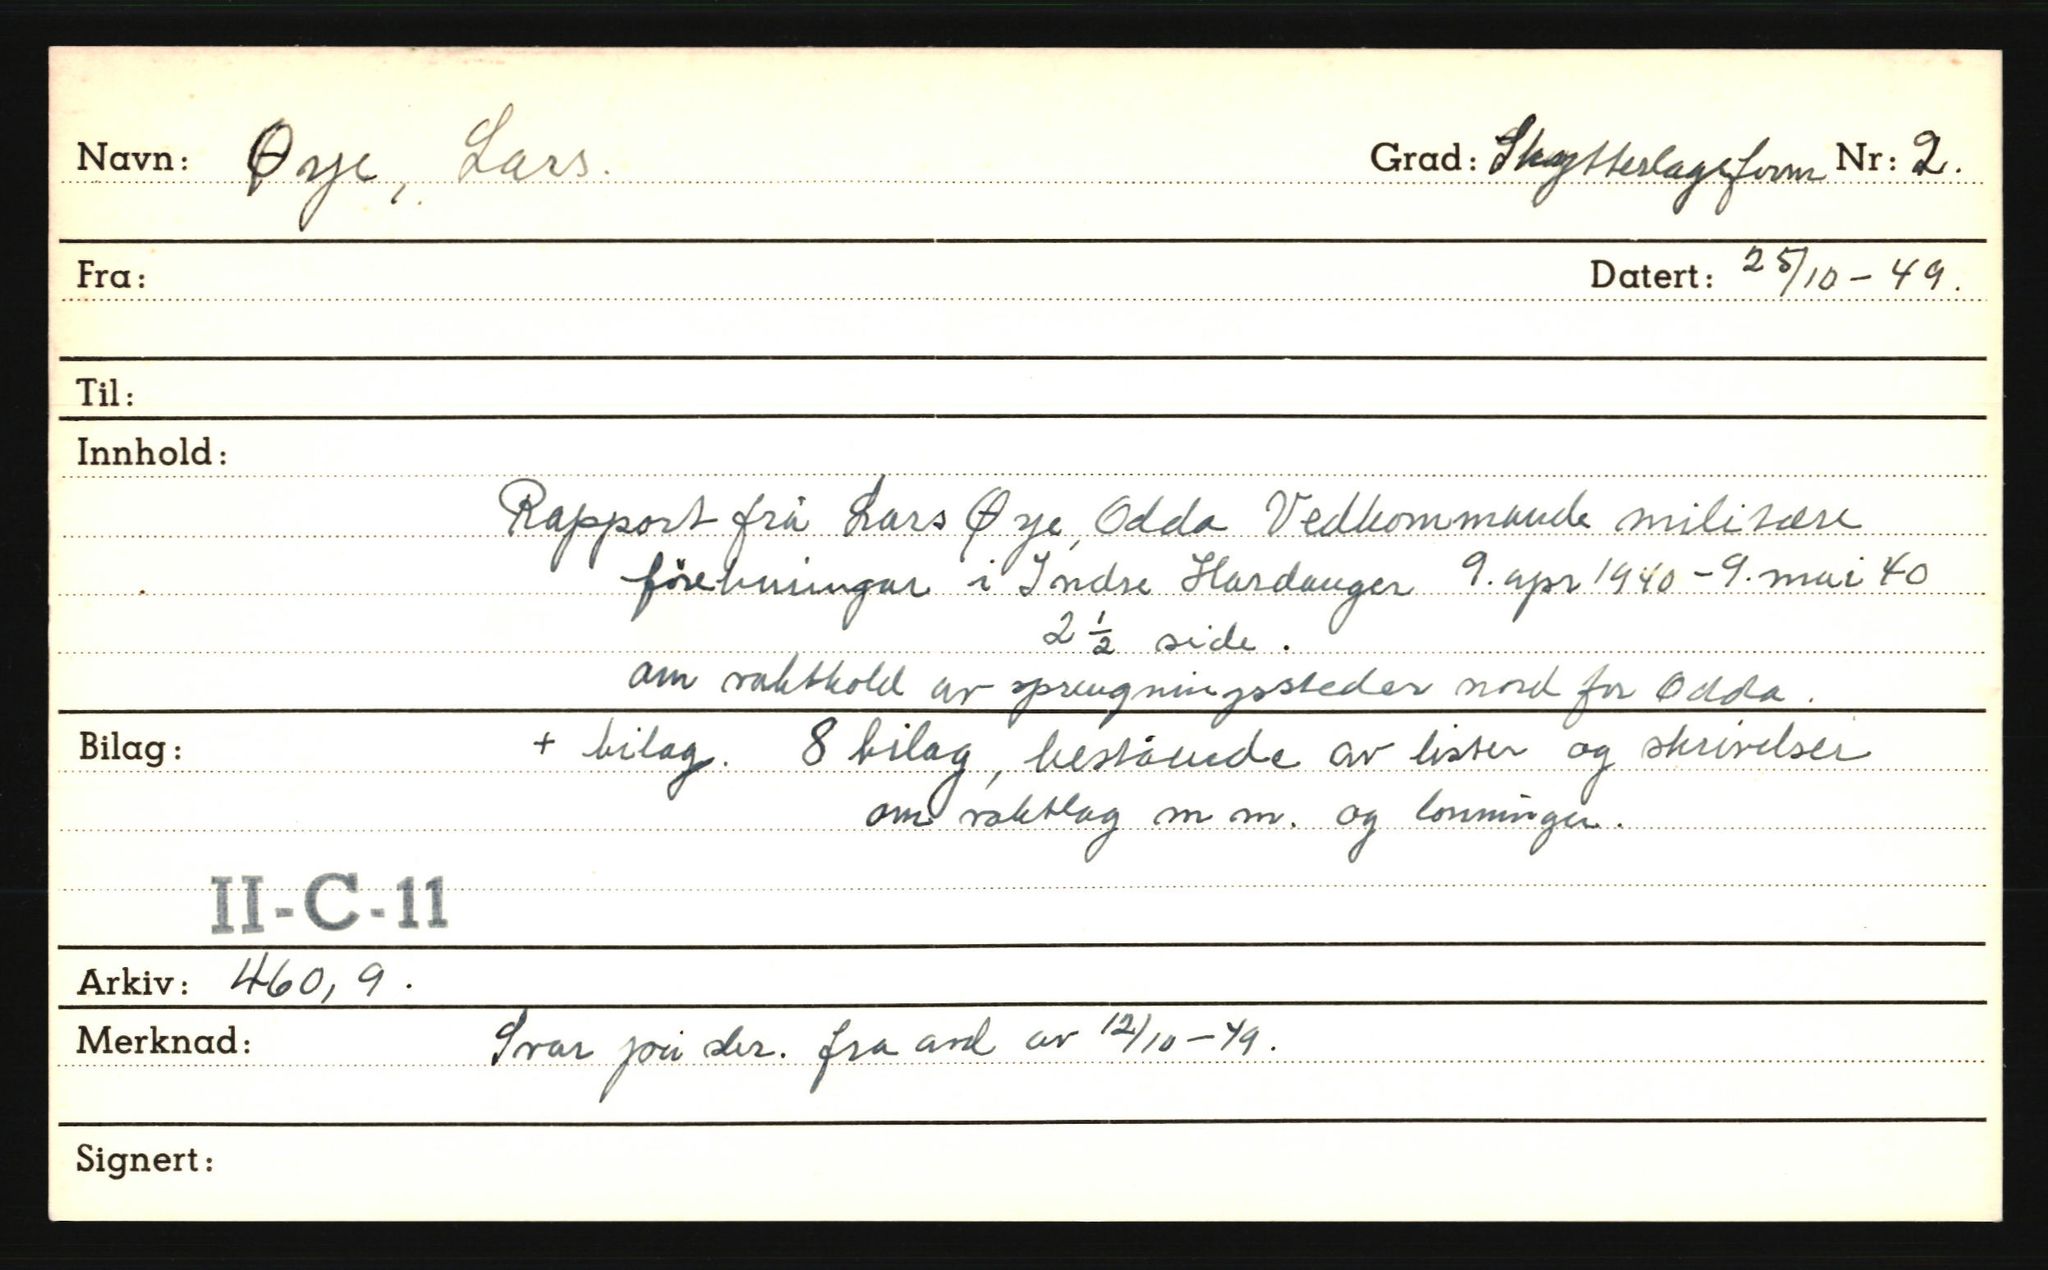 Navn: Øye, Lars. Grad: Skytterlagsform Nr: 2.
Fra: Datert: 25/10-49.
Til:
Innhold:
Rapport frå Lars Øye, Odda Vedkommande militære
förebuingar i Indre Hardanger 9. apr 1940-9. mai 40
2 1/2 side.
om vakthold av sprengningssteder nord for Odda.
Bilag: + bilag. 8 bilag, bestående av lister og skrivelser
om vaktlag m m. og lønninger.
II-C-11
Arkiv: 460,9.
Merknad: Svar på skr. fra avd av 12/10-49.
Signert: